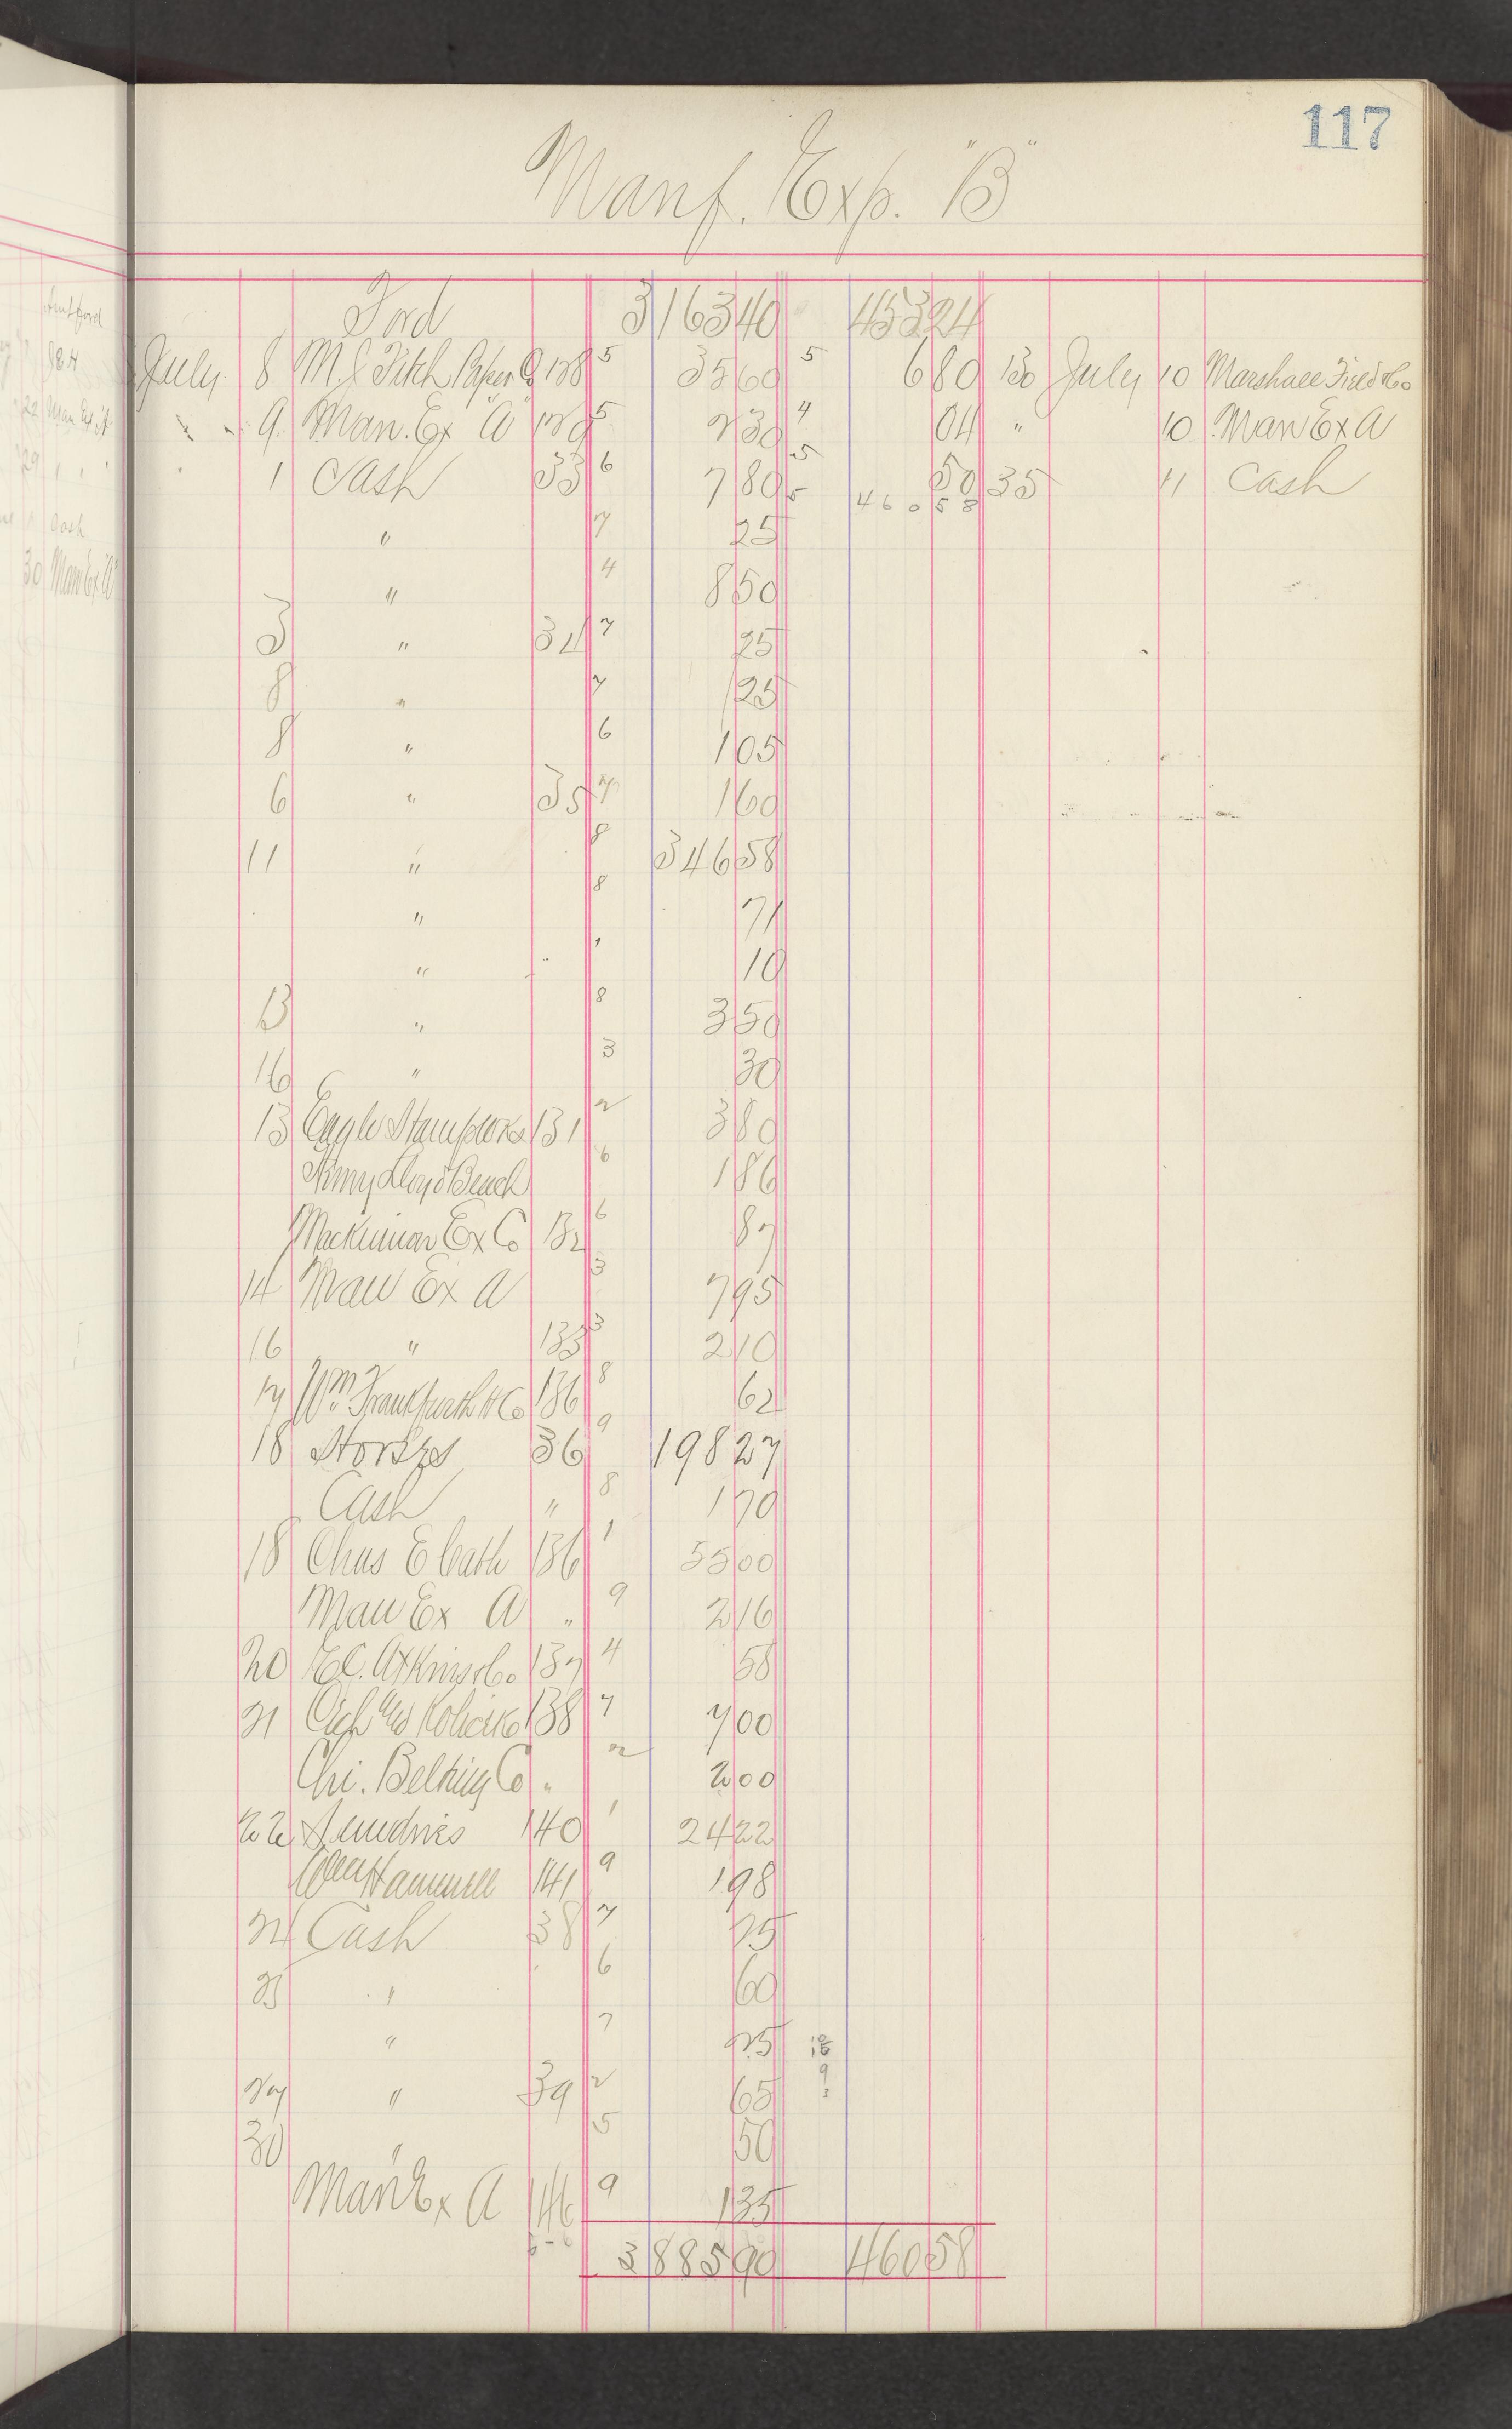 117
Manf. Exp. "B"
Ford 3163 40 453 24
July 8 M. J. Fitch Paper Co 128 5 35 60 5 6 80 130 July 10 Marshall Field & Co
" " 9 Man. Ex "A" 129 5 2 30 4 04 " 10 Man Ex A
1 Cash 33 6 7 80 5 50 35 11 Cash
460 58
" 7 25
" 4 8 50
3 " 34 7 25
8 " 7 1 25
8 " 6 1 05
6 " 35 7 1 60
11 " 8 346 58
" 8 71
" 1 10
13 " 8 3 50
16 " 3 30
13 Eagle Stamp Works 131 2 3 80
Lloyd Beach 6 1 86
Mackinnon Ex Co 132 6 87
14 Man Ex A 3 7 95
16 " 133 3 2 10
17 Wm Frankfurth H Co 136 8 62
18 36 9 198 27
Cash " 8 1 70
18 Chas E 136 1 55 00
Man Ex A " 9 2 16
20 E.C. Atkins & Co. 137 4 58
21 138 7 7 00
Chi. Belting Co " 2 2 00
22 Sundries 140 1 24 22
Hammell 141 9 1 98
24 Cash 38 7 25
25 " 6 60
" 7 25
27 " 39 2 65
30 " 5 50
Man Ex A 146 9 1 35
3885 90 460 58